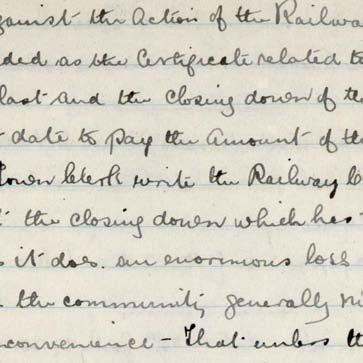 against the Action of the Railwa
ded as the Certificate related to
last and the closing down of th
date to pay the Amount of the
Town Clerk write the Railway
the closing down which has
s it does an enormous loss
the community generally
convenience - That unless th